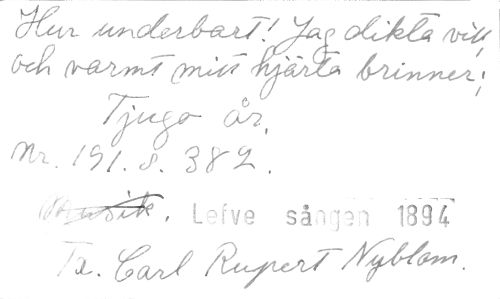 Hur underbart! Jag dikta vill
och varmt mitt hjärta brinner;
Tjugo år.
Nr. 191. s. 382.
Musik. Lefve sången 1894
Tx. Carl Rupert Nyblom.